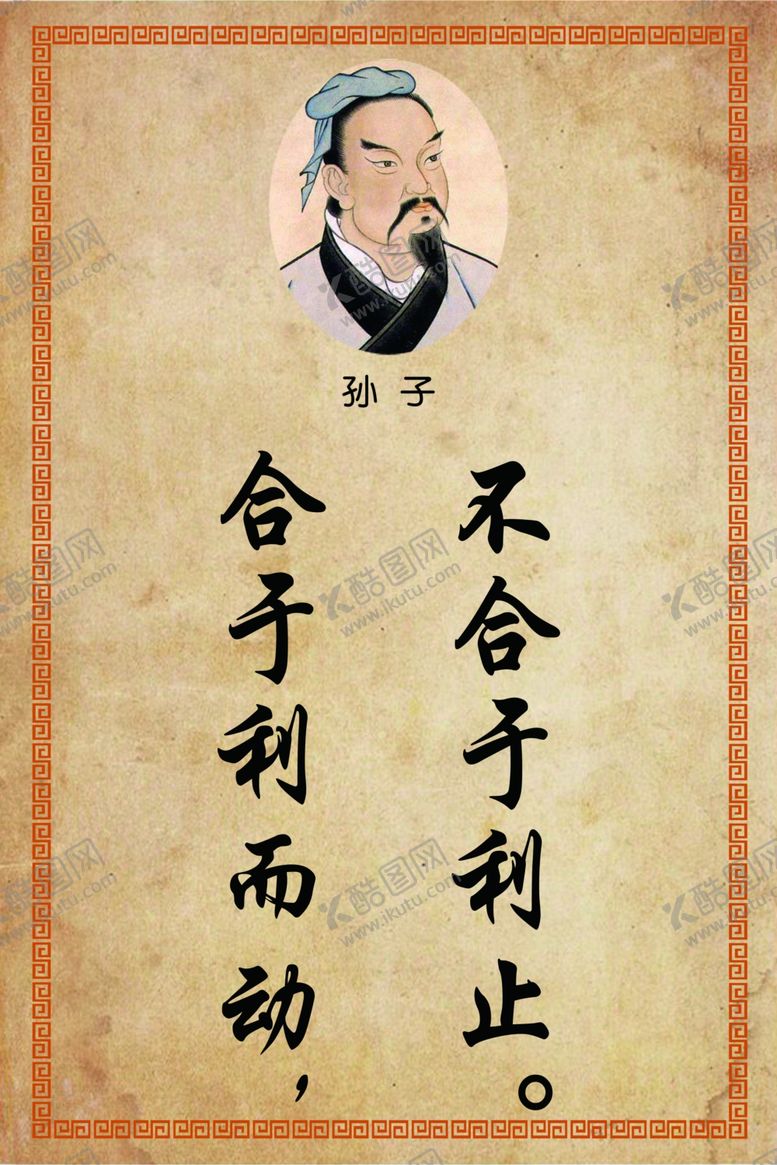 孙子
合于利而动，
不合于利止。
酷图网
www.ikutu.com